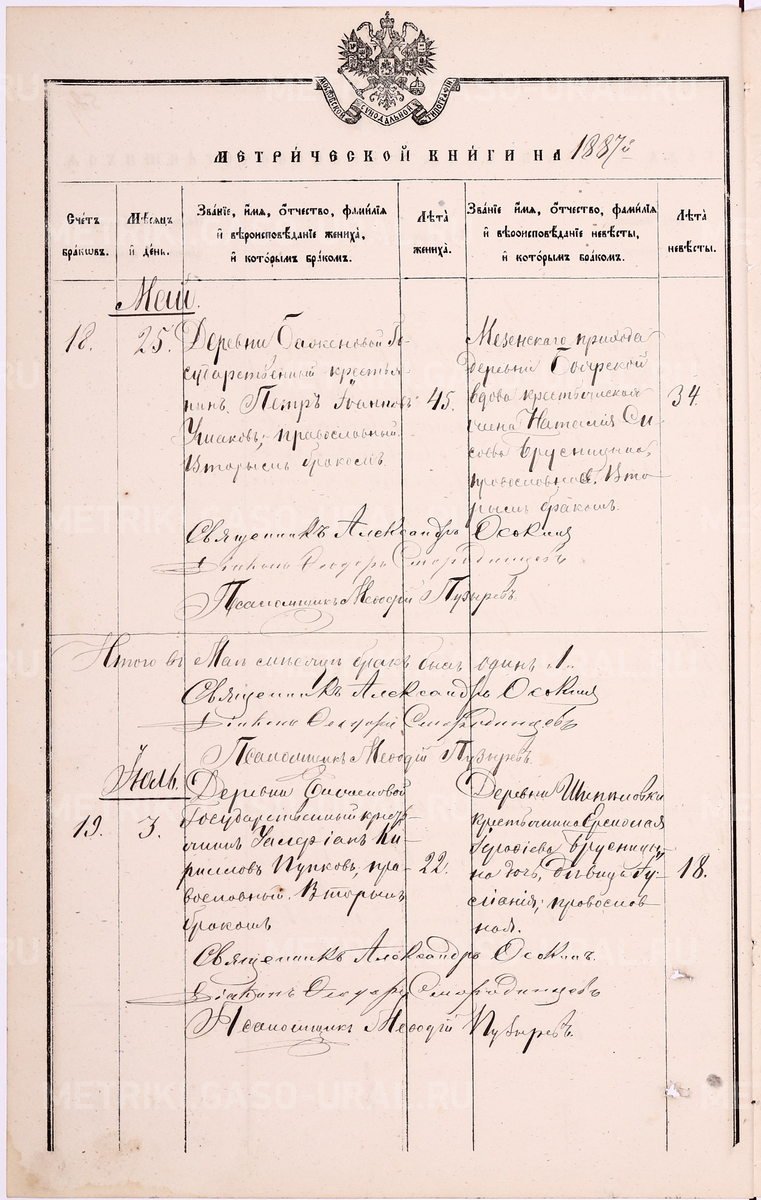 МОСКОВСКОЙ СѴНОДАЛЬНОЙ ТИПОГРАФІИ
МЕТРИ́ЧЕСКОЙ КНИ́ГИ НА 1887 г.
Сче́тъ бра́кωвъ.
Мѣ́сѧцъ и҆ де́нь.
Зва́нїе, и҆́мѧ, ѻ҆́тчество, фамилїѧ и҆ вѣроисповѣ́данїе жениха̀, и҆ кото́рымъ бра́комъ.
Лѣ́та жениха̀.
Зва́нїе и҆́мѧ, ѻ҆́тчество, фамилїѧ и҆ вѣроисповѣ́данїе невѣ́сты, и҆ кото́рымъ бра́комъ.
Лѣ́та невѣ́сты.
Май.
18.
25.
Деревни Баженовой Го-
сударственный крестья-
нинъ Петръ Іоанновъ
Ушаковъ, православный
Вторымъ бракомъ
45.
Мезенскаго прихода
деревни Боярской
вдова крестьянская
жена Наталія Сы-
соева Брусницина,
православная. Вто-
рымъ бракомъ.
34.
Священникъ Александръ Осокинъ
Діаконъ Ѳеодоръ Смородинцевъ
Псаломщикъ Меѳодій Пузыревъ
Итого въ Маѣ мѣсяцѣ бракъ былъ одинъ 1.
Священникъ Александръ Осокинъ
Діаконъ Ѳеодоръ Смородинцевъ
Псаломщикъ Меѳодій Пузыревъ.
Іюль.
19.
3.
Деревни
Государственный кресть-
янинъ Валеріанъ Ки-
рилловъ Пупковъ, пра-
вославный. Вторымъ
бракомъ
22.
Деревни Шипиловки
крестьянина
Брусницы-
на дочь, дѣвица Іу-
ліанія, православ
ная.
18.
Священникъ Александръ Осокинъ.
Діаконъ Ѳеодоръ Смородинцевъ
Псаломщикъ Меѳодій Пузыревъ.
METRIKI.GASO-URAL.RU